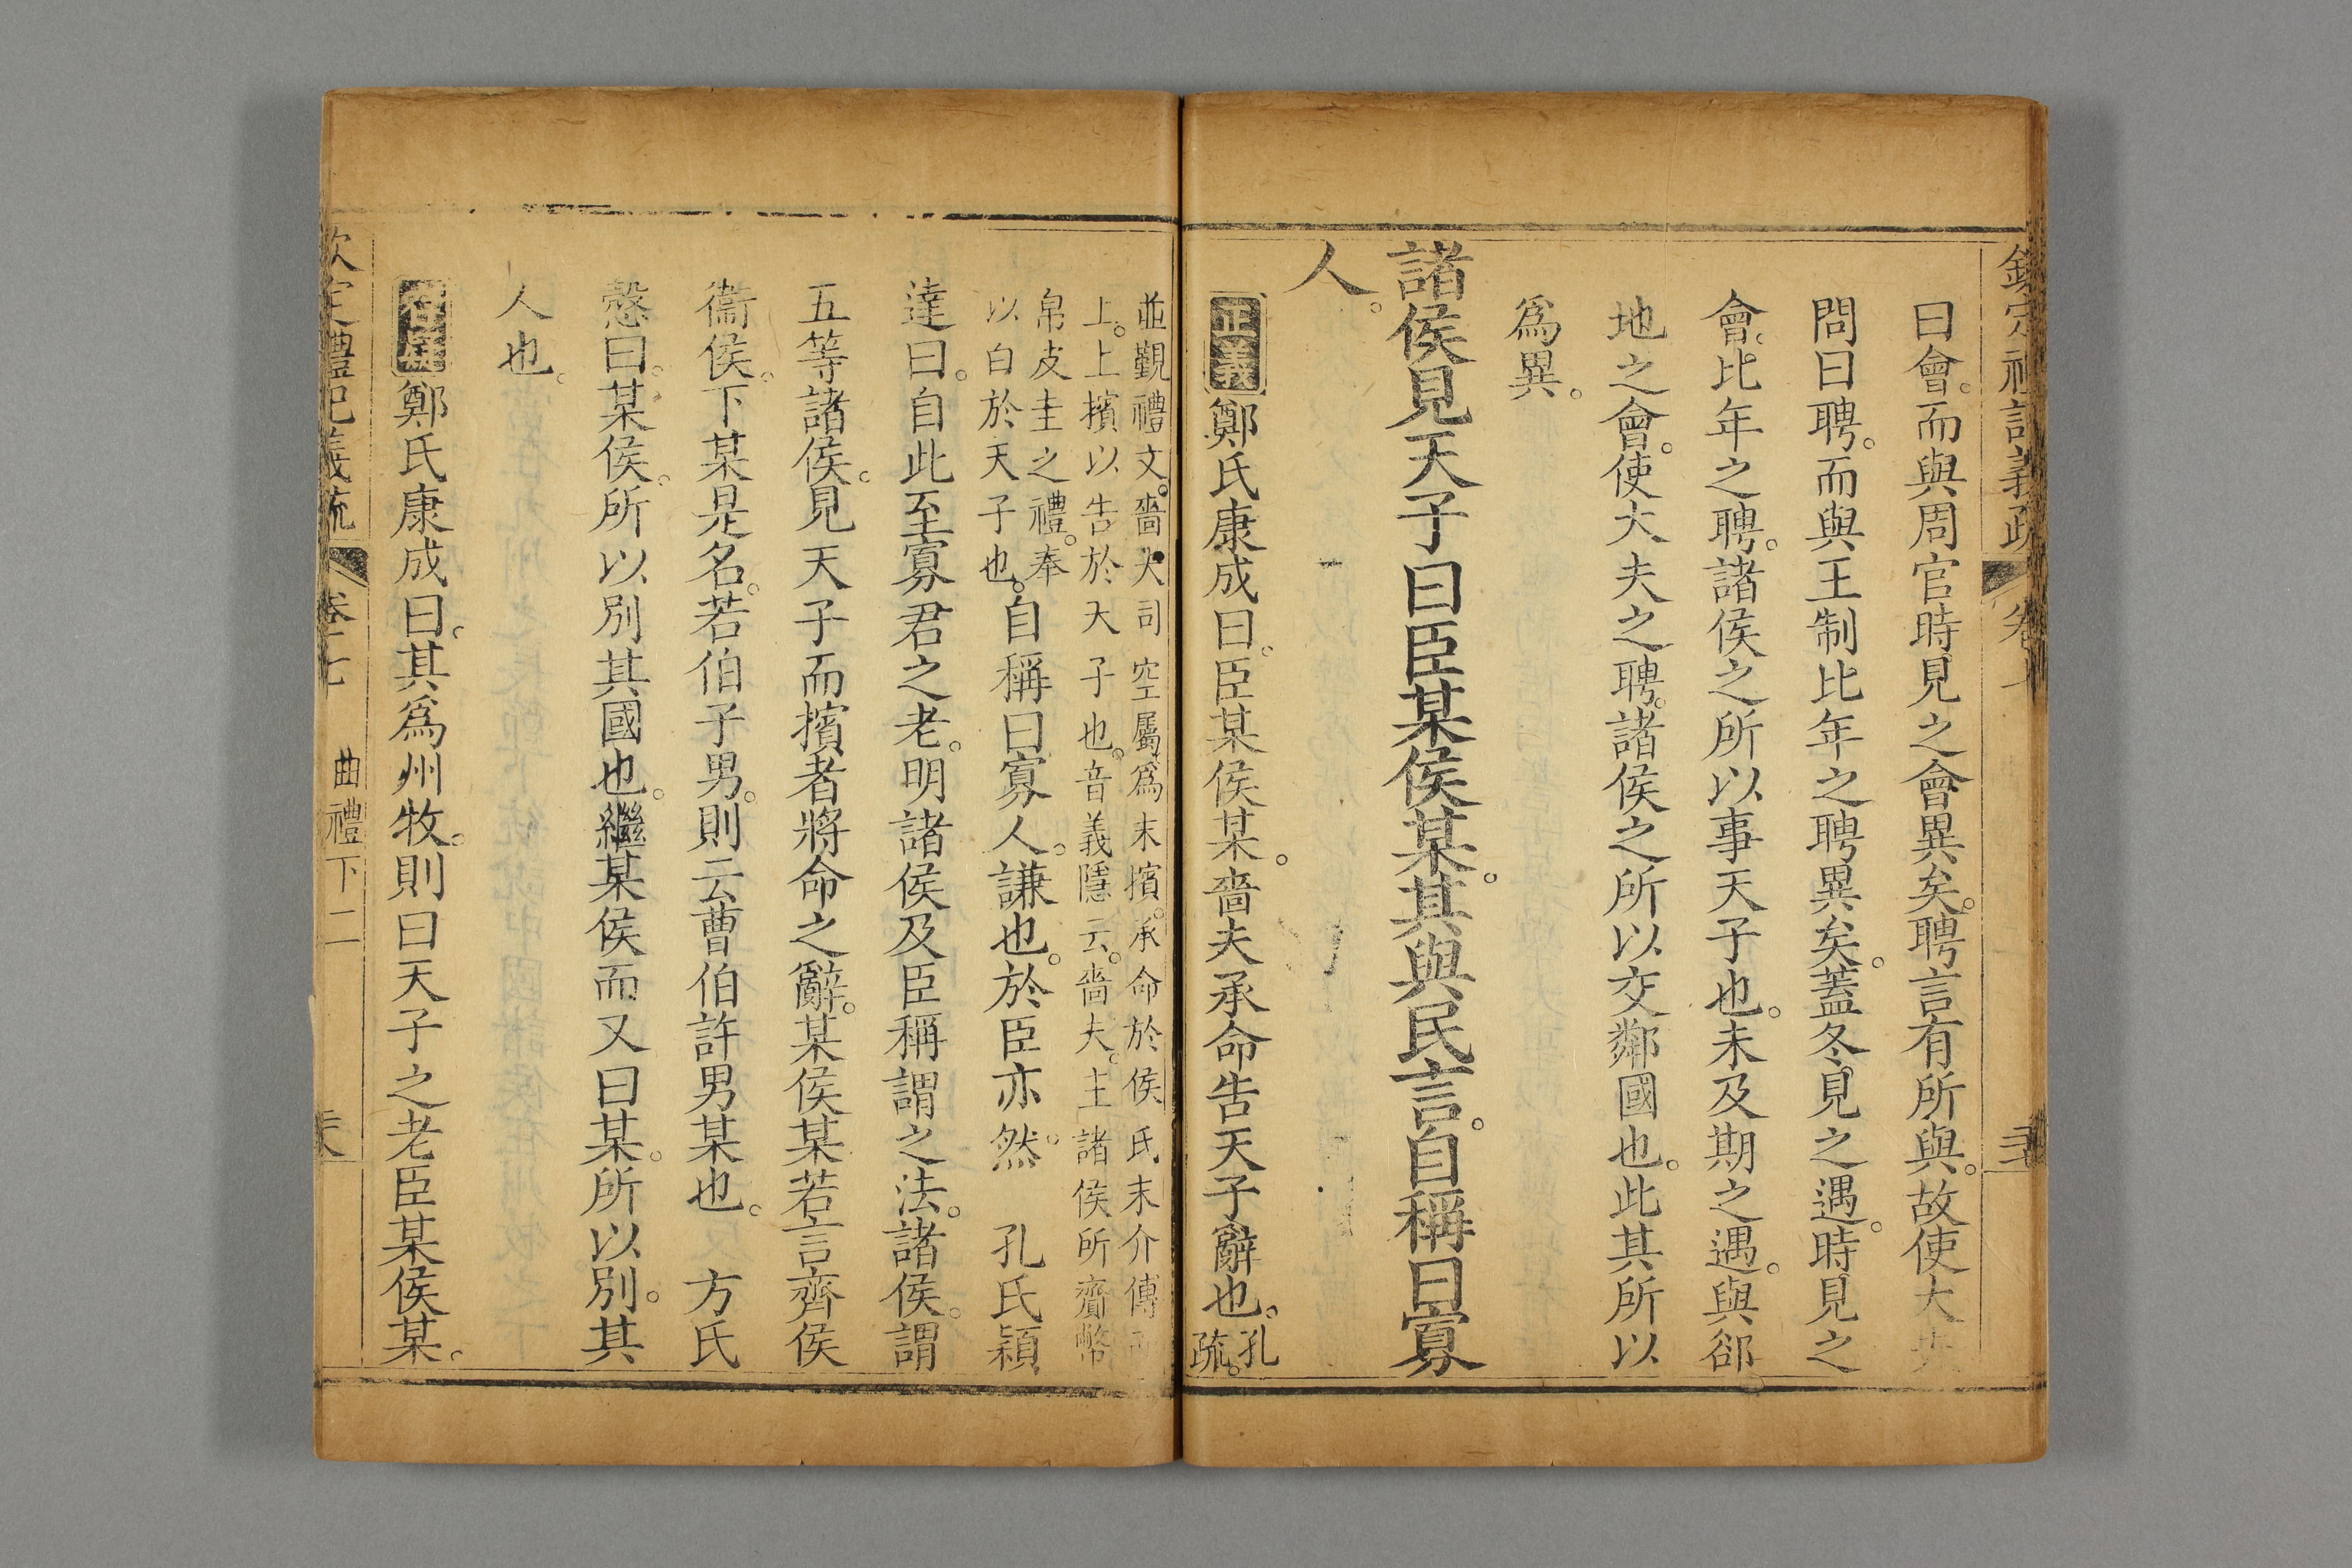 曰會。而與周官時見之會異矣。聘言有所與。故使大夫
問曰聘。而與王制比年之聘異矣。蓋冬見之遇。時見之
會。比年之聘。諸侯之所以事天子也。未及期之遇。與郤
地之會。使大夫之聘。諸侯之所以交鄰國也。此其所以
爲異。
諸侯見天子曰臣某侯某。其與民言。自稱曰寡
人。
正義鄭氏康成曰。臣某侯某。嗇夫承命告天子辭也。孔
疏。
並覲禮文。嗇夫司空屬。爲末擯。承命於侯氏末介傳而
上。上擯以告於天子也。音義隱云。嗇夫。主諸侯所齎幣
帛皮圭之禮。奉
以白於天子也。自稱曰寡人。謙也。於臣亦然。 孔氏穎
達曰。自此至寡君之老。明諸侯及臣稱謂之法。諸侯。謂
五等諸侯。見天子而擯者將命之辭。某侯某若言齊侯
衞侯。下某是名。若伯子男。則云曹伯許男某也。 方氏
慤曰。某侯。所以別其國也。繼某侯而又曰某。所以別。其
人也。
鄭氏康成曰。其爲州牧。則曰天子之老臣某侯某。
欽定禮記義疏 卷七 曲禮下二